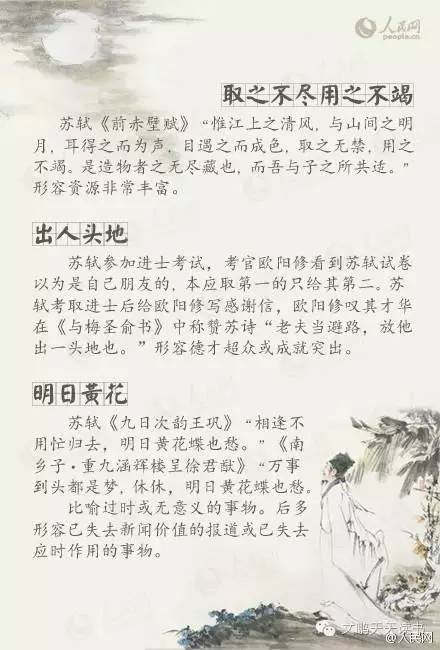 人民网
people.cn
取之不尽用之不竭
苏轼《前赤壁赋》“惟江上之清风，与山间之明
月，耳得之而为声，目遇之而成色，取之无禁，用之
不竭。是造物者之无尽藏也，而吾与子之所共适。”
形容资源非常丰富。
出人头地
苏轼参加进士考试，考官欧阳修看到苏轼试卷
以为是自己朋友的，本应取第一的只给其第二。苏
轼考取进士后给欧阳修写感谢信，欧阳修叹其才华
在《与梅圣俞书》中称赞苏诗“老夫当避路，放他
出一头地也。”形容德才超众或成就突出。
明日黄花
苏轼《九日次韵王巩》“相逢不
用忙归去，明日黄花蝶也愁。”《南
乡子·重九涵辉楼呈徐君猷》“万事
到头都是梦，休休，明日黄花蝶也愁。
比喻过时或无意义的事物。后多
形容已失去新闻价值的报道或已失去
应时作用的事物。
文鹏天天读书
@人民网